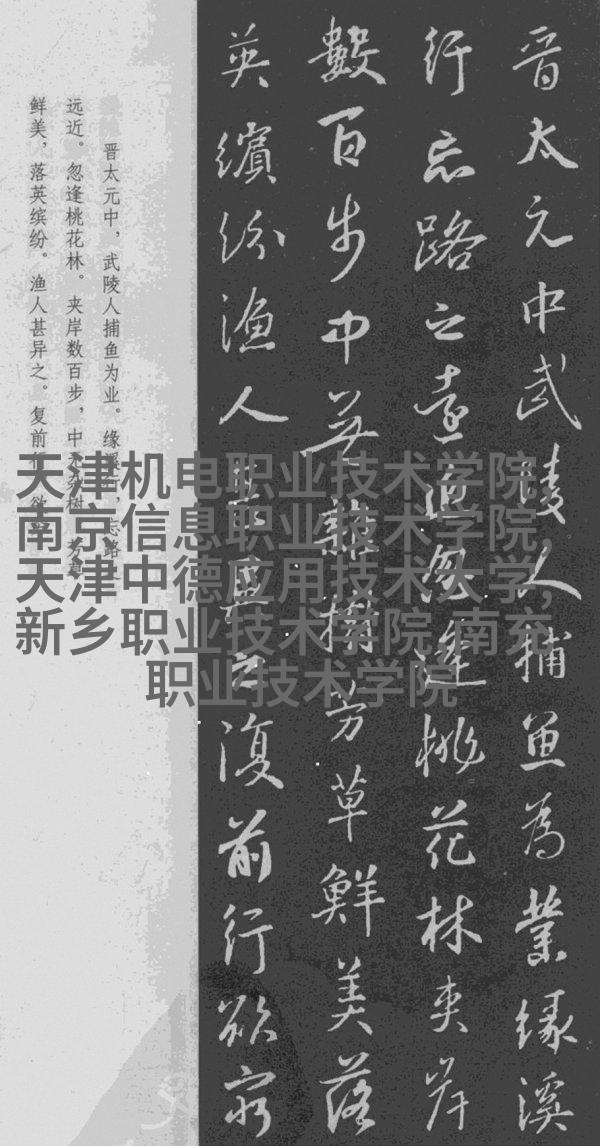 晉太元中武陵人捕魚為業緣溪
行忘路之遠近忽逢桃花林夾岸
數百步中無雜樹芳草鮮美落
英繽紛漁人甚異之復前行欲窮
晋太元中，武陵人捕鱼为业。缘溪行，忘路之
远近。忽逢桃花林。夹岸数百步，中无杂树，芳草
鲜美，落英缤纷。渔人甚异之。复前行，欲
天津机电职业技术学院,
南京信息职业技术学院,
天津中德应用技术大学,
新乡职业技术学院,南充
职业技术学院